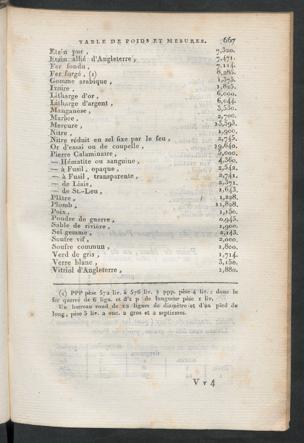 TABLE DE POIDS ET MESURES. 667
Etain pur, 7,320.
Etain allié d'Angleterre, 7,471.
Fer fondu, 7,114.
Fer forgé, (1) 8,285.
Gomme arabique, 1,375.
Ivoire, 1,825.
Litharge d'or, 6,000.
Litharge d'argent, 6,044.
Manganèse, 3,530.
Marbre, 2,700.
Mercure, 13,593.
Nitre, 1,900.
Nitre réduit en sel fixe par le feu, 2,745.
Or d'essai ou de coupelle, 19,640.
Pierre Calaminaire, 5,000.
— Hématite ou sanguine, 4,360.
— à Fusil, opaque, 2,542.
— à Fusil, transparente, 2,741.
— de Liais, 2,371.
— de St.-Leu, 1,643.
Plâtre, 1,228.
Plomb, 11,828.
Poix, 1,150.
Poudre de guerre, 0,945.
Sable de rivière, 1,900.
Sel gemme, 2,143.
Soufre vif, 2,000.
Soufre commun, 1,800.
Verd de gris, 1,714.
Verre blanc, 3,150.
Vitriol d'Angleterre, 1,880.
(1) PPP pèse 572 liv. à 576 liv. 3 ppp. pèse 4 liv. : dans le
fer quarré de 6 lign. et d'1 p de longueur pèse 1 liv.
Un barreau rond de 12 lignes de diamètre et d'un pied de
long, pèse 3 liv. 2 onc. 2 gros et 2 septiemes.
V v 4